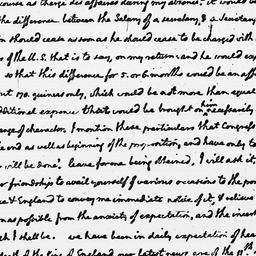 course as Charge des affaires during my absence. it would be
the difference between the Salary of a secretary, & a Secretary
in should cease as soon as he should cease to be charged with
of the U.S. that is to say, on my return: and he would exp
so that this difference for 5. or 6. months would be an aff
but 170. guineas only, which would be not more than equal
dditional expence that would be brought on him necessarily
ange of character. I mention these particulars that Congress
end as well as beginning of the proposition, and have only to
will be done'. leave for me being obtained, I will ask it,
or friendship to avail yourself of various occasions to the po
ce & England to convey me immediate notice of it, & relieve
as possible from the anxiety of expectation, and the incert
ch I shall be. we have been in daily expectation of hea
death of the King of England our latest news are of the 11th.